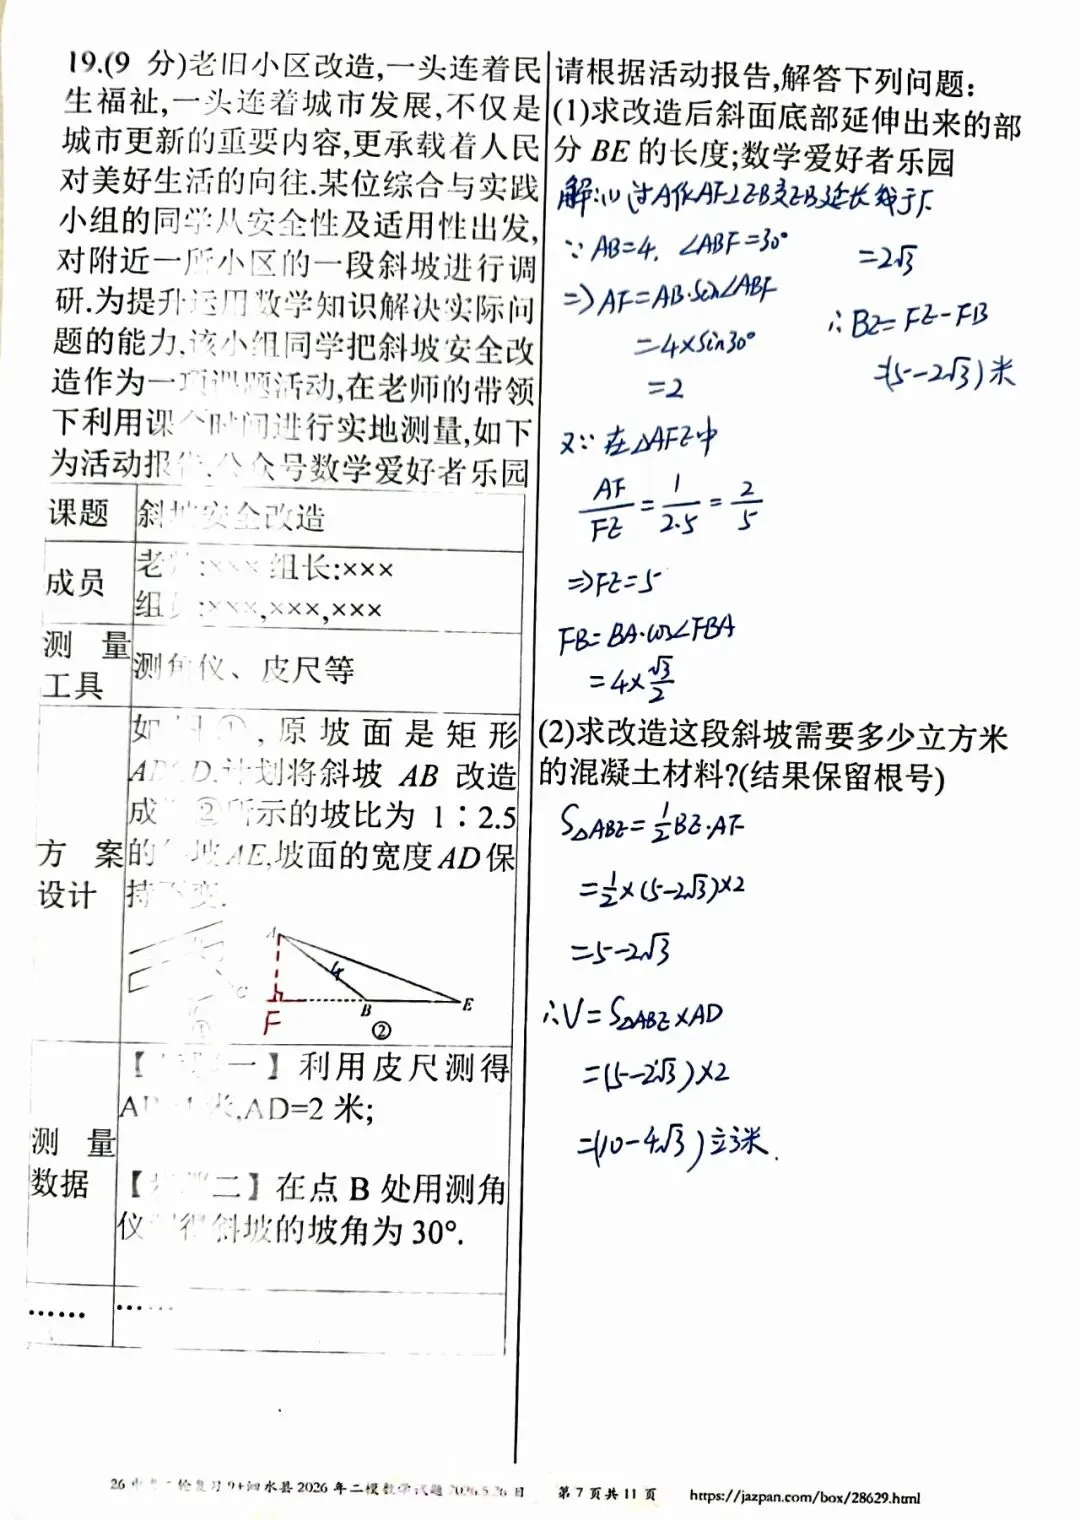 19.(9 分)老旧小区改造,一头连着民
生福祉,一头连着城市发展,不仅是
城市更新的重要内容,更承载着人民
对美好生活的向往.某位综合与实践
小组的同学从安全性及适用性出发,
对附近一所小区的一段斜坡进行调
研.为提升运用数学知识解决实际问
题的能力,该小组同学把斜坡安全改
造作为一项课题活动,在老师的带领
下利用课余时间进行实地测量,如下
为活动报告.公众号数学爱好者乐园
课题 斜坡安全改造
成员
老 :××× 组长:×××
组 :×××,×××,×××
测 量
工具
测角仪、皮尺等
方 案
设计
如 ①,原坡面是矩形
AB D.计划将斜坡 AB 改造
成 ②所示的坡比为 1∶2.5
的 坡AE,坡面的宽度AD保
持不变.
A
4
B
E
F
C
①
②
测 量
数据
【 一】利用皮尺测得
米,AD=2 米;
【 二】在点 B 处用测角
仪 得斜坡的坡角为 30°.
……
……
请根据活动报告,解答下列问题:
(1)求改造后斜面底部延伸出来的部
分 BE 的长度;数学爱好者乐园
解:(1) 过A作AF⊥EB交EB延长线于F.
∵ AB=4, ∠ABF=30°
⇒ AF=AB·Sin∠ABF
=4×Sin30°
=2
又∵ 在△AFE中
AF/FE = 1/2.5 = 2/5
⇒FE=5
FB=BA·cos∠FBA
=4×√3/2
=2√3
∴BE=FE-FB
=(5-2√3)米
(2)求改造这段斜坡需要多少立方米
的混凝土材料?(结果保留根号)
S△ABE=1/2BE·AF
=1/2×(5-2√3)×2
=5-2√3
∴V=S△ABE×AD
=(5-2√3)×2
=(10-4√3)立方米.
26 中考二轮复习9+泗水县2026年二模数学试题2026.5.26日 第7页共11页 https://jazpan.com/box/28629.html